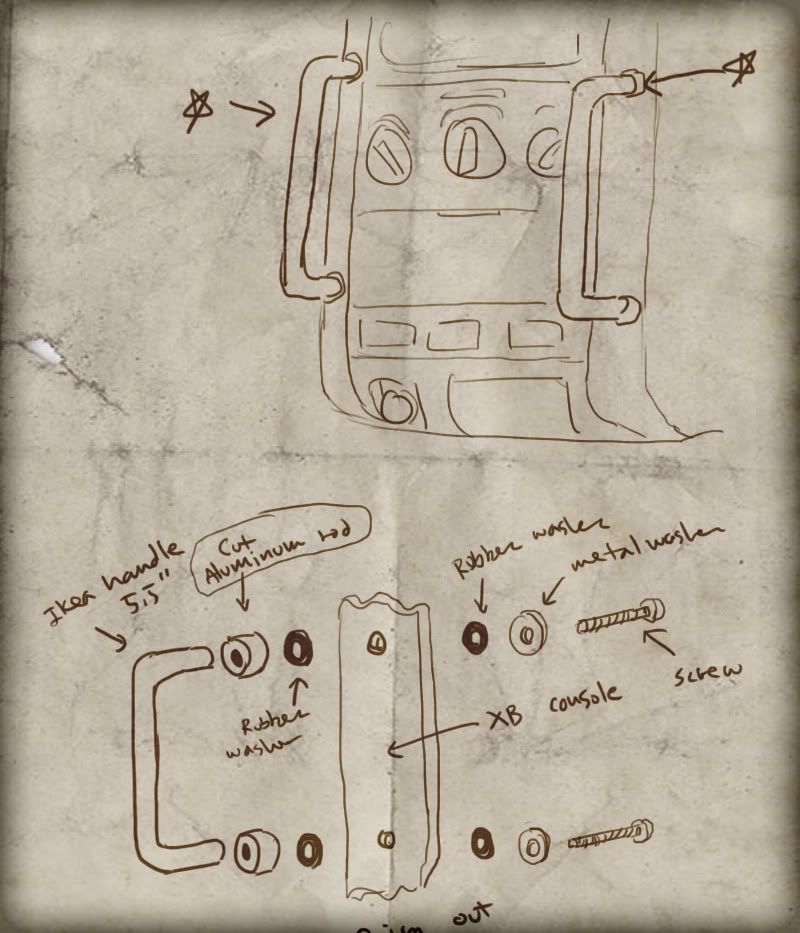 Cut
Aluminum rod
Ikea handle
5.5"
Rubber washer
metal washer
Rubber
washer
XB console
screw
out